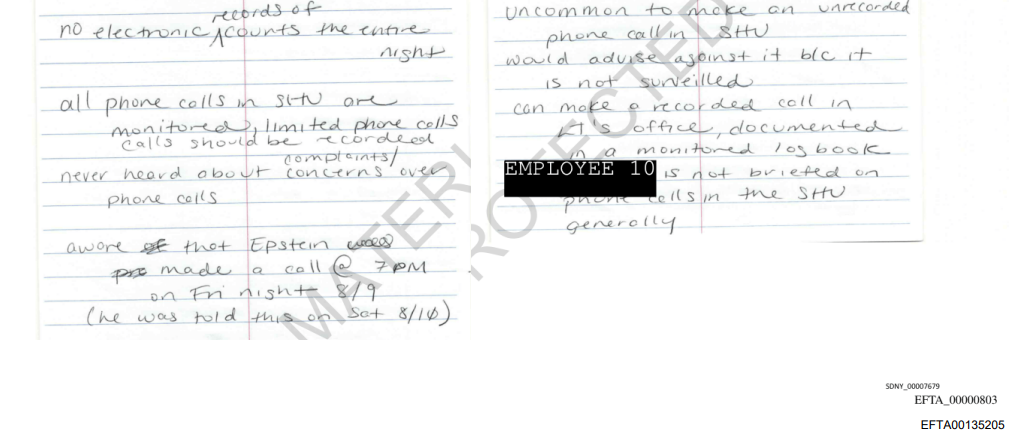 records of
no electronic ^ counts the entire
night
all phone calls in SHU are
monitored, limited phone calls
calls should be recorded
complaints/
never heard about concerns over
phone calls
aware of that Epstein was
pro made a call @ 7PM
on Fri night 8/9
(he was told this on Sat 8/10)
uncommon to make an unrecorded
phone call in SHU
would advise against it b/c it
is not surveilled
can make a recorded call in
LT's office, documented
in a monitored logbook
EMPLOYEE 10 is not briefed on
phone calls in the SHU
generally
MATERIAL
PROTECTED
SDNY_00007679
EFTA_00000803
EFTA00135205